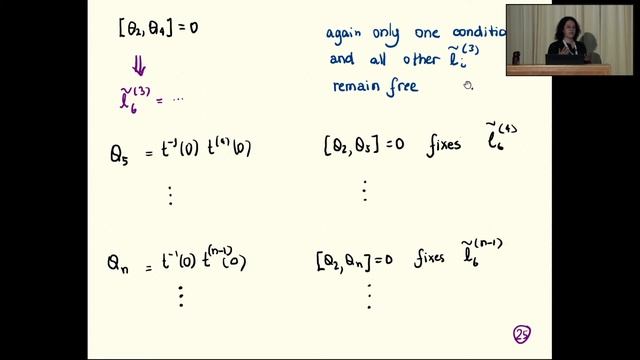 [Q₂,Q₄]=0
again only one conditio
and all other l̃ᵢ⁽³⁾
remain free
⇓
l̃₆⁽³⁾ = ...
Q₅ = t⁻¹(0) t⁽⁴⁾(0)
[Q₂,Q₅]=0 fixes l̃₆⁽⁴⁾
⋮
⋮
Qₙ = t⁻¹(0) t⁽ⁿ⁻¹⁾(0)
[Q₂,Qₙ]=0 fixes l̃₆⁽ⁿ⁻¹⁾
⋮
⋮
25